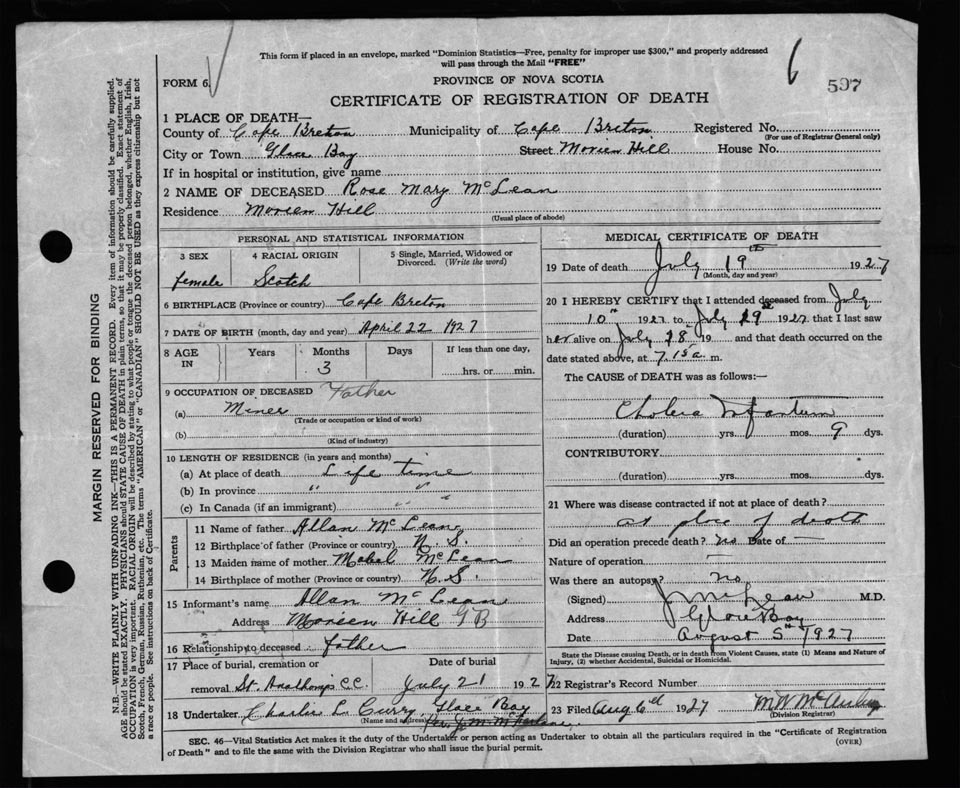 This form if placed in an envelope, marked "Dominion Statistics—Free, penalty for improper use $300," and properly addressed
will pass through the Mail "FREE"
6
597
FORM 6.
PROVINCE OF NOVA SCOTIA
CERTIFICATE OF REGISTRATION OF DEATH
1 PLACE OF DEATH—
County of Cape Breton Municipality of Cape Breton Registered No.
(For use of Registrar General only)
City or Town Glace Bay Street Morien Hill House No.
If in hospital or institution, give name
2 NAME OF DECEASED Rose Mary McLean
Residence Morien Hill
(Usual place of abode)
PERSONAL AND STATISTICAL INFORMATION
3 SEX 4 RACIAL ORIGIN 5 Single, Married, Widowed or Divorced. (Write the word)
Female Scotch
6 BIRTHPLACE (Province or country) Cape Breton
7 DATE OF BIRTH (month, day and year) April 22 1927
8 AGE IN Years Months Days If less than one day,
3 hrs. or min.
9 OCCUPATION OF DECEASED Father
(a) Miner
(Trade or occupation or kind of work)
(b)
(Kind of industry)
10 LENGTH OF RESIDENCE (in years and months)
(a) At place of death Life time
(b) In province " "
(c) In Canada (if an immigrant) " "
Parents
11 Name of father Allan McLean
12 Birthplace of father (Province or country) N.S.
13 Maiden name of mother Mabel McLean
14 Birthplace of mother (Province or country) N.S.
15 Informant's name Allan McLean
Address Morien Hill G B
16 Relationship to deceased father
17 Place of burial, cremation or Date of burial
removal St. C.C. July 21 1927
18 Undertaker Charlie L Curry, Glace Bay
(Name and address)
MEDICAL CERTIFICATE OF DEATH
19 Date of death July 19th 1927
(Month, day and year)
20 I HEREBY CERTIFY that I attended deceased from July
10th 1927 to July 1927 that I last saw
her alive on July 19 and that death occurred on the
date stated above, at 7.15 a. m.
The CAUSE of DEATH was as follows:—
Cholera Infantum
(duration) yrs. mos. 9 dys.
CONTRIBUTORY
(duration) yrs. mos. dys.
21 Where was disease contracted if not at place of death?
at place of death
Did an operation precede death? no Date of —
Nature of operation —
Was there an autopsy? no
(Signed) M.D.
Address Glace Bay
Date August 5th 1927
State the Disease causing Death, or in death from Violent Causes, state (1) Means and Nature of
Injury, (2) whether Accidental, Suicidal or Homicidal.
22 Registrar's Record Number
23 Filed Aug 6th 1927
(Division Registrar)
SEC. 46—Vital Statistics Act makes it the duty of the Undertaker or person acting as Undertaker to obtain all the particulars required in the "Certificate of Registration
of Death" and to file the same with the Division Registrar who shall issue the burial permit.
(OVER)
MARGIN RESERVED FOR BINDING
N.B.—WRITE PLAINLY WITH UNFADING INK—THIS IS A PERMANENT RECORD. Every item of information should be carefully supplied.
AGE should be stated EXACTLY. PHYSICIANS should STATE CAUSE OF DEATH in plain terms, so that it may be properly classified. Exact statement of
OCCUPATION is very important. RACIAL ORIGIN will be described by stating to what people or tongue the deceased person belonged, whether English, Irish,
Scotch, French, German, Russian, Ruthenian, etc. The terms "AMERICAN" or "CANADIAN" SHOULD NOT BE USED as they express citizenship but not
a race or people. See instructions on back of Certificate.